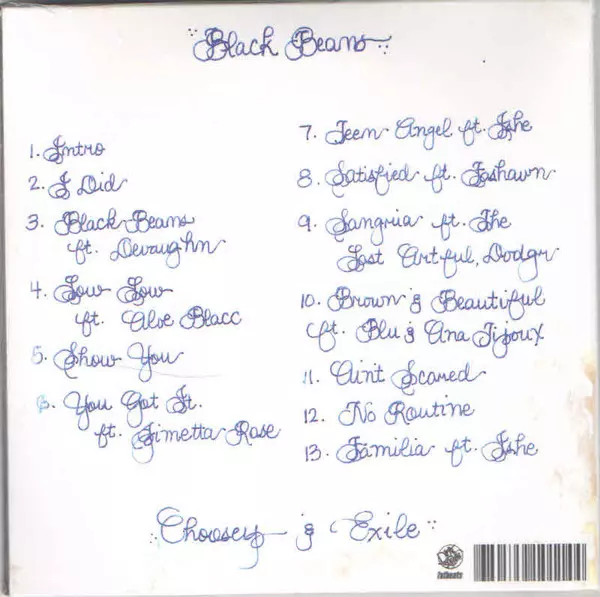 Black Beans
1. Intro
2. I Did
3. Black Beans
ft. Devaughn
4. Low Low
ft. Aloe Blacc
5. Show You
6. You Got It.
ft. Jimetta Rose
7. Teen Angel ft. Ishe
8. Satisfied ft. Fashawn
9. Sangria ft. The
Last Artful, Dodgr
10. Brown & Beautiful
ft. Blu & Ana Tijoux
11. Aint Scared
12. No Routine
13. Familia ft. Ishe
Choosey & Exile
fatbeats